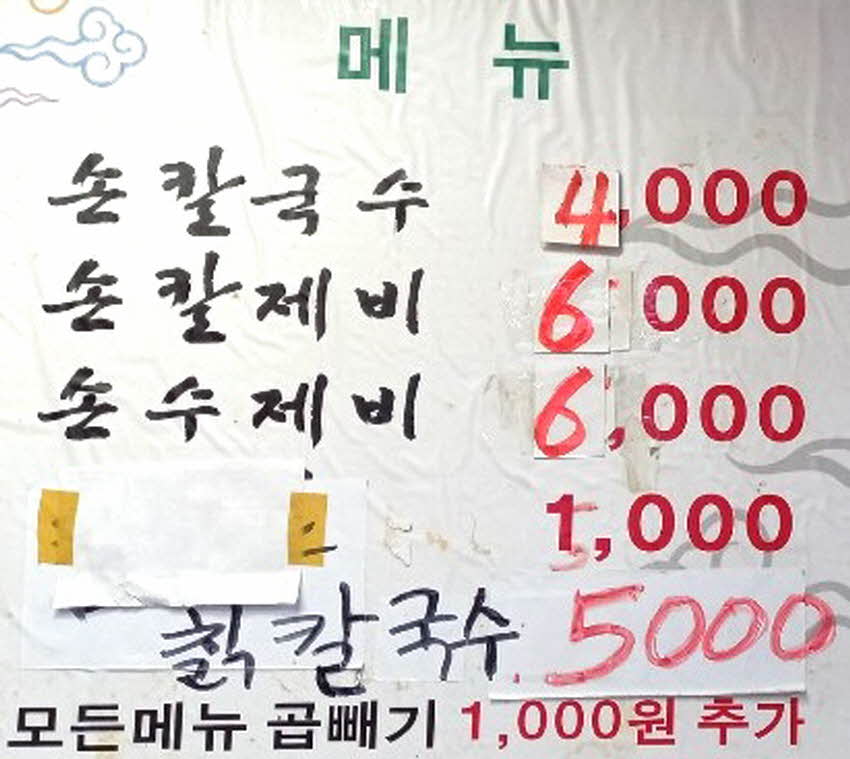 메 뉴
손칼국수 4,000
손칼제비 6,000
손수제비 6,000
1,000
칡칼국수 5000
모든메뉴 곱빼기 1,000원 추가